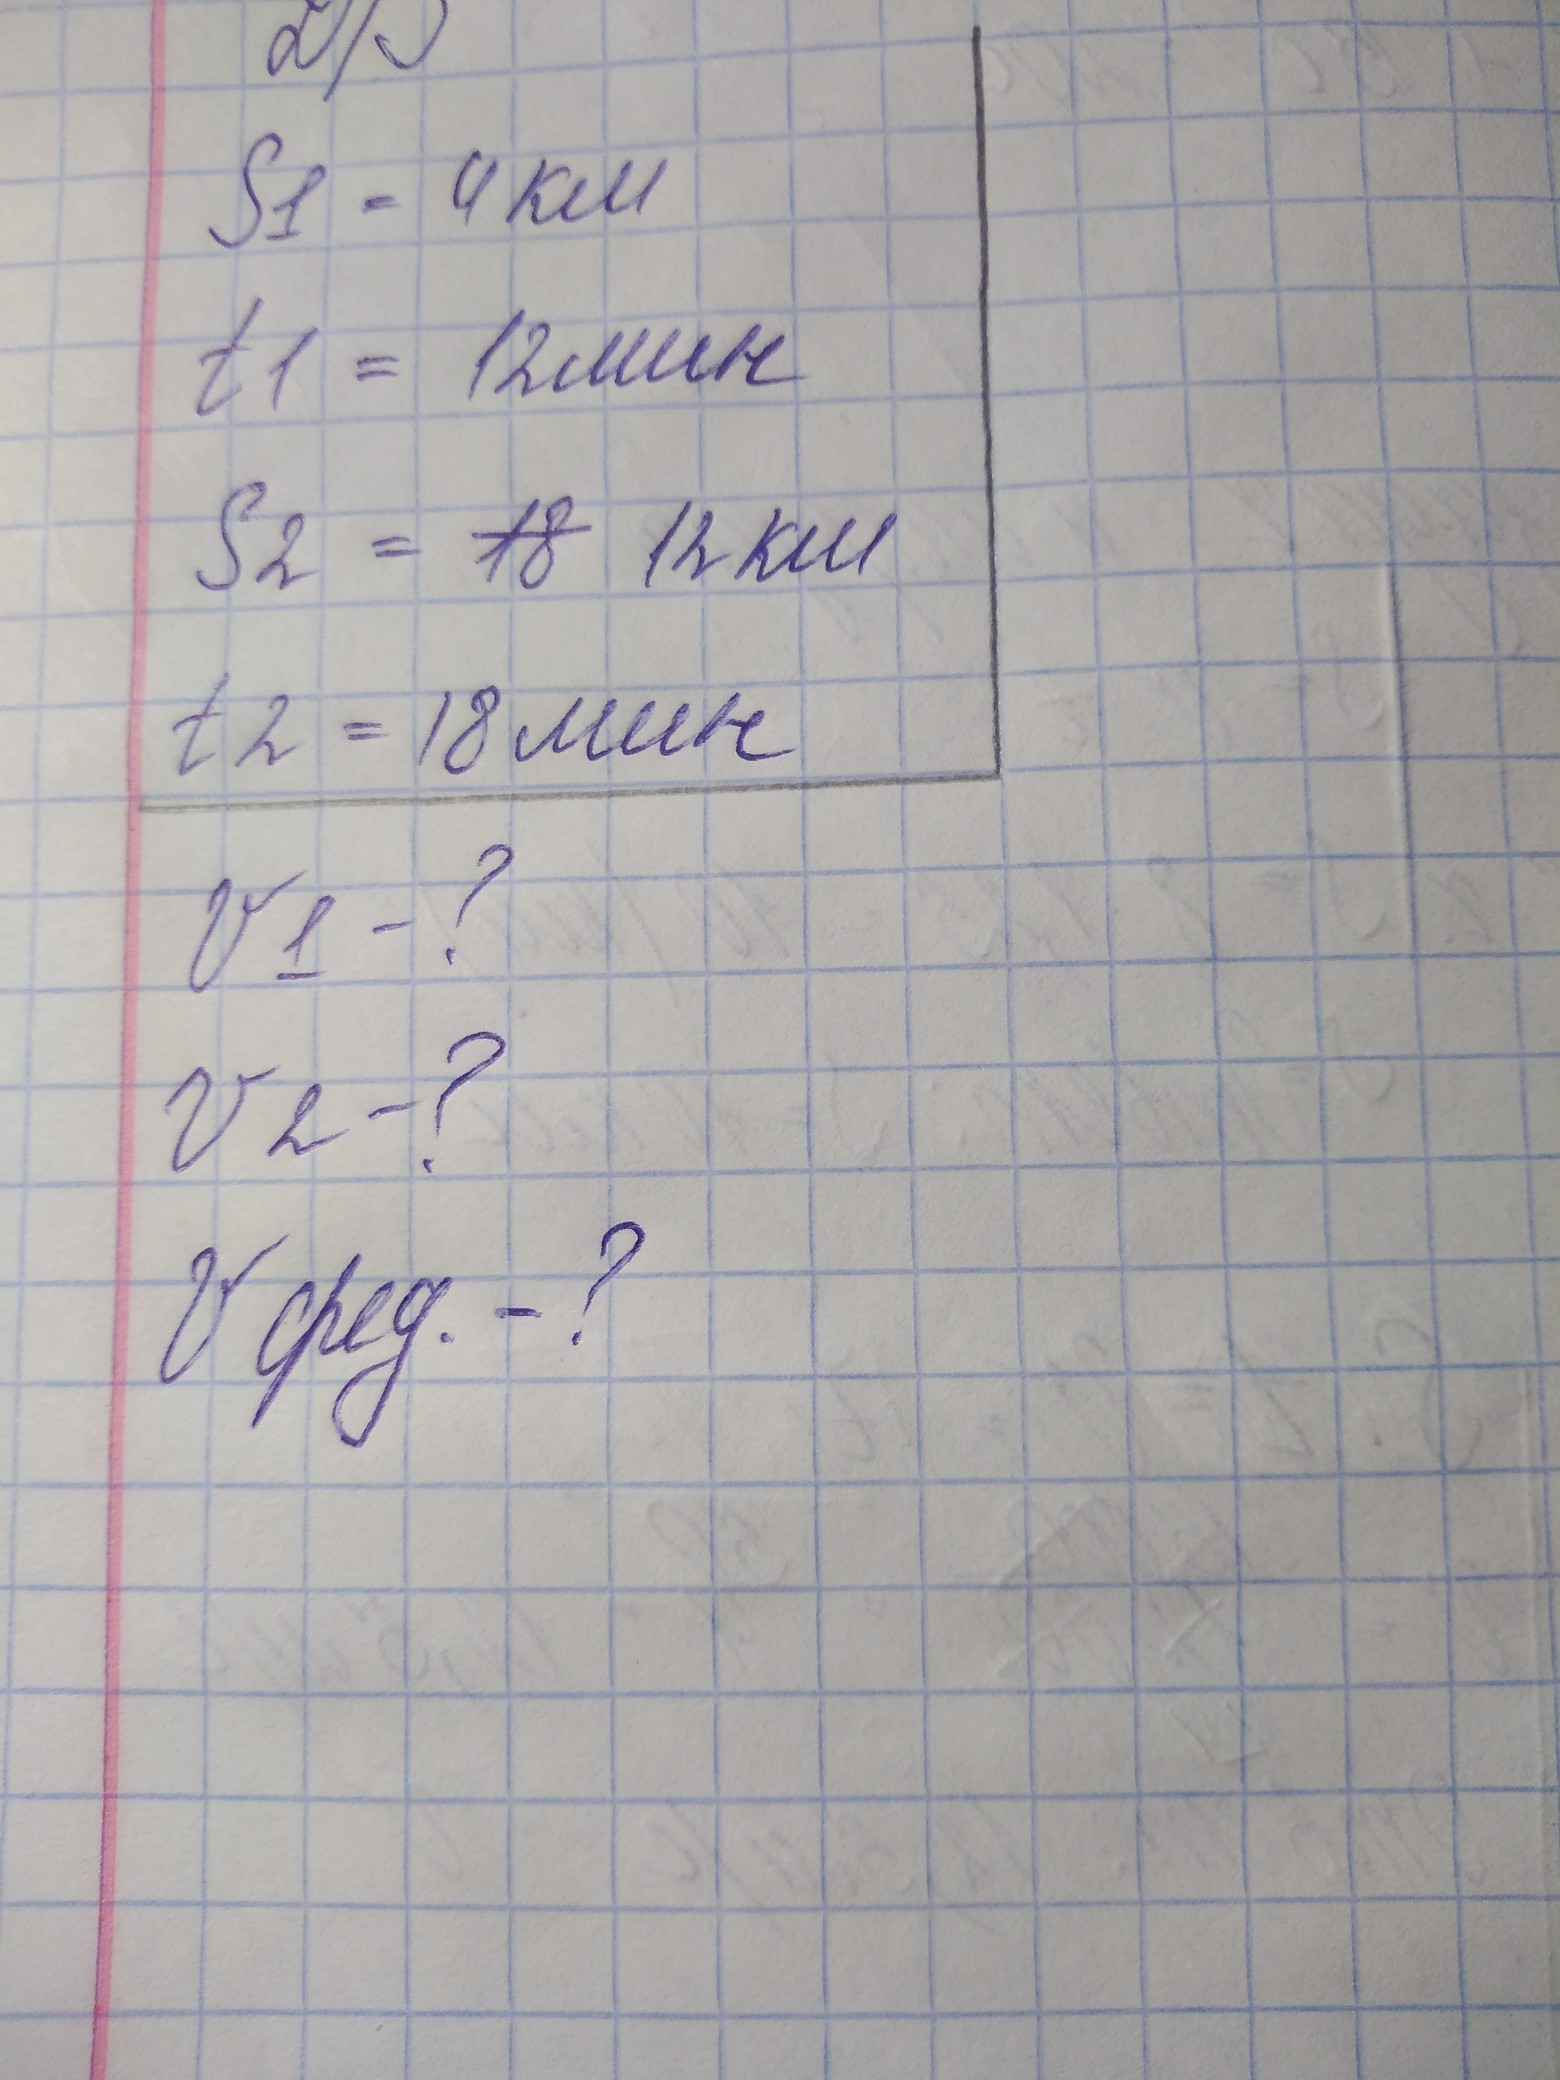 Д/З
S1 = 4 км
t1 = 12 мин
S2 = 18 12 км
t2 = 18 мин
V1 - ?
V2 - ?
V сред. - ?